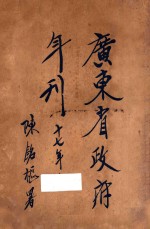 廣東省政府
年刊
十七年
陳銘樞署